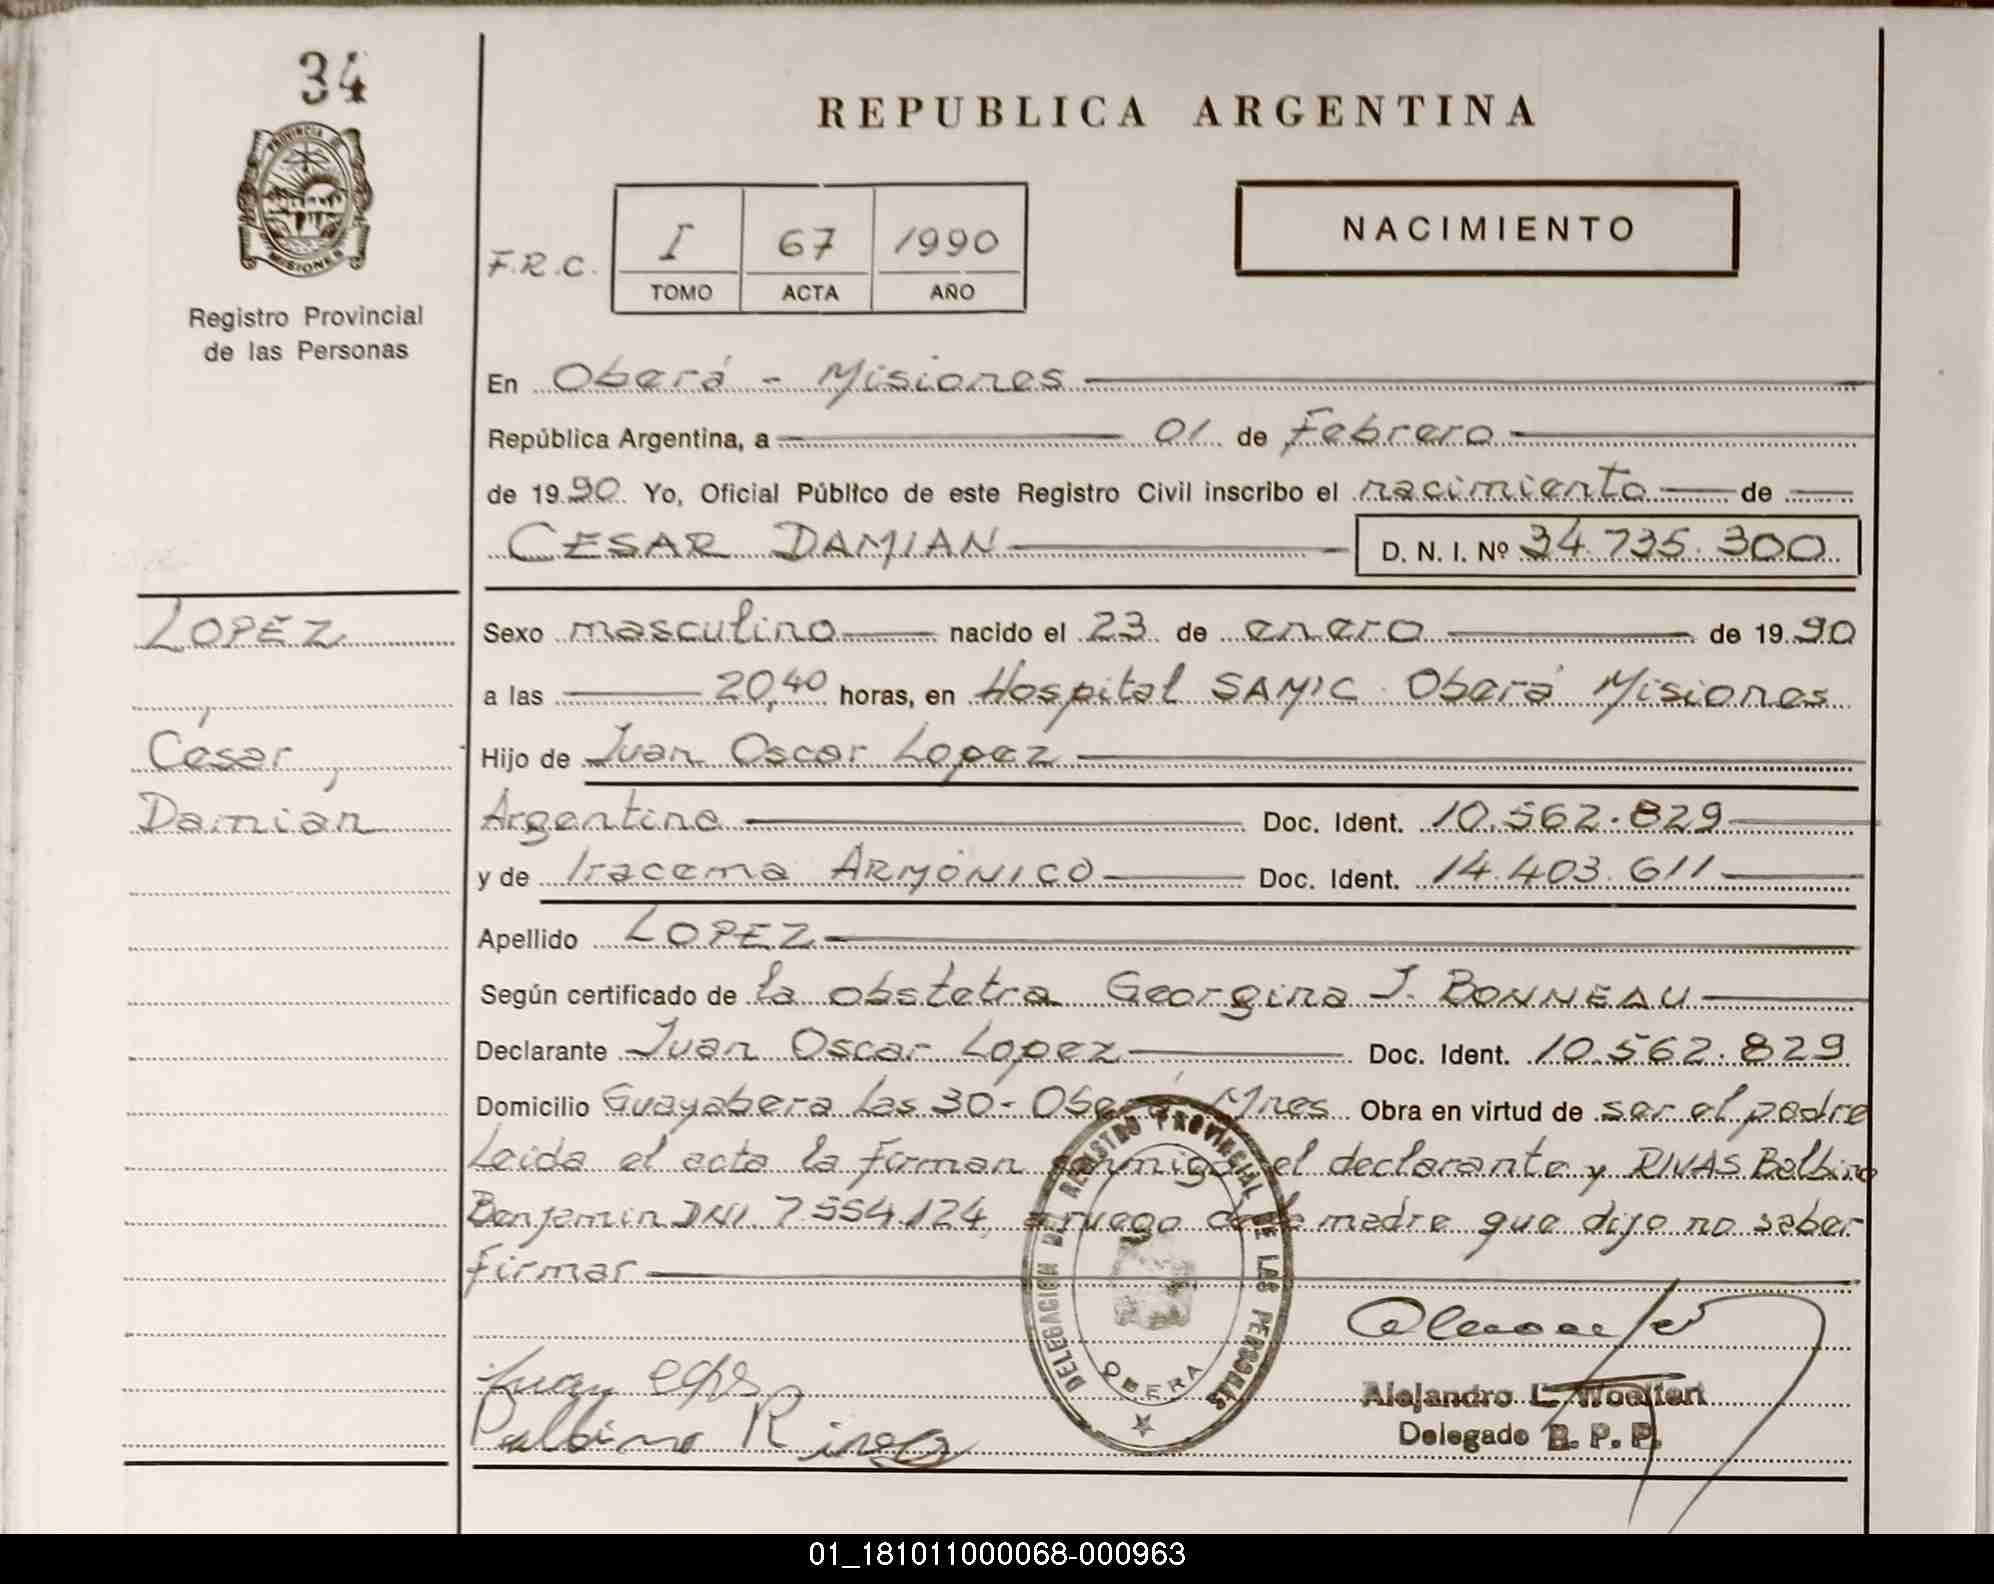 34
REPUBLICA ARGENTINA
PROVINCIA DE
MISIONES
Registro Provincial
de las Personas
NACIMIENTO
F.R.C. I 67 1990
TOMO ACTA AÑO
En Oberá - Misiones
República Argentina, a 01 de Febrero
de 1990 Yo, Oficial Público de este Registro Civil inscribo el nacimiento de
CESAR DAMIAN D. N. I. Nº 34.735.300
LOPEZ
César,
Damián
Sexo masculino nacido el 23 de enero de 1990
a las 20,40 horas, en Hospital SAMIC Oberá Misiones
Hijo de Juan Oscar Lopez
Argentino Doc. Ident. 10.562.829
y de Iracema ARMÓNICO Doc. Ident. 14.403.611
Apellido LOPEZ
Según certificado de la obstetra Georgina J. BONNEAU
Declarante Juan Oscar Lopez Doc. Ident. 10.562.829
Domicilio Guayabera Las 30 - Oberá Mnes Obra en virtud de ser el padre
Leida el acta la firman conmigo el declarante y RIVAS Balbino
Benjamin DNI. 7.554.124, a ruego de la madre que dijo no saber
firmar
DELEGACION DEL REGISTRO PROVINCIAL DE LAS PERSONAS
OBERA
Balbino Rivas
Alejandro L. Woelfert
Delegado R. P. P.
01_181011000068-000963